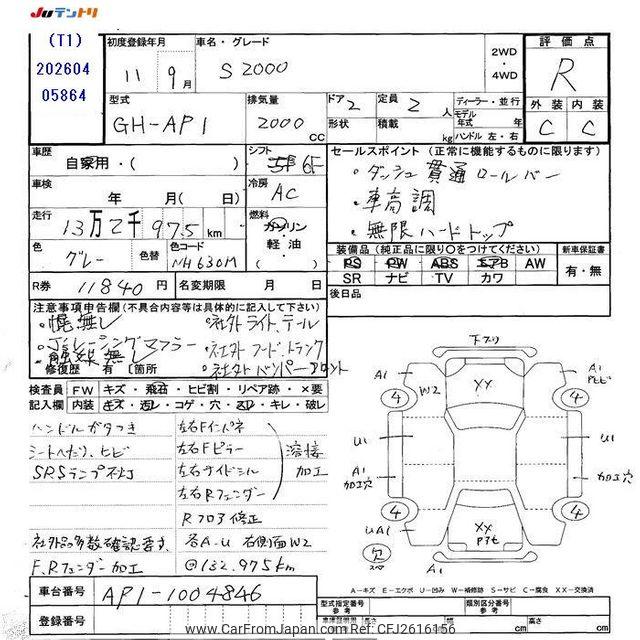 JUテントリ
(T1)
202604
05864
初度登録年月
11年 9月
車名・グレード
S2000
2WD
・
4WD
評価点
R
外装 内装
C C
型式
GH-AP1
排気量
2000 CC
ドア 2
形状
定員 2 人
積載 kg
ディーラー・並行
モデル年式 年
ハンドル 左・右
車歴
自家用・( )
シフト
6F
セールスポイント (正常に機能するものに限ります)
・ダッシュ貫通ロールバー
・車高調
・無限ハードトップ
車検
年 月( )
冷房
AC
走行
13万2千975km
燃料
ガソリン
軽油
( )
色
グレー
色替
色コード
NH630M
装備品 (純正品に限り○をつけてください)
PS PW ABS エアB AW
SR ナビ TV カワ
新車保証書
有・無
R券 11840 円
名変期限 月 日
後日品
注意事項申告欄 (不具合内容等は具体的に記入して下さい)
・幌無し
・社外ライト、テール
・J'sレーシングマフラー
・社外フード、トランク
・触媒無し
・社外バンパーフロント
修復歴 有 (箇所
検査員 FW キズ・飛石・ヒビ割・リペア跡・×要
記入欄 内装 キズ・汚レ・コゲ・穴・スレ・キレ・破レ
ハンドルガタつき
シートへたり、ヒビ
SRSランプ不灯
社外品多数確認要す
F,Rフェンダー加工
左右Fインパネ
左右Fピラー
左右サイドシル
左右Rフェンダー
溶接
加工
Rフロア修正
各A-U 右側面W2
132,975km
下アリ
A1
W2
XX
A1
4 4
U1
U1
A1
加工穴
加工穴
4 4
UA1
XX
欠
A1
A-キズ E-エクボ U-凹み W-補修跡 S-サビ C-腐食 XX-交換済
車台番号 AP1-1004846
登録番号
型式指定番号
類別区分番号
参考
参考
車庫証明用
長さ cm
幅 cm
高さ cm
www.CarFromJapan.com Ref: CFJ2616156